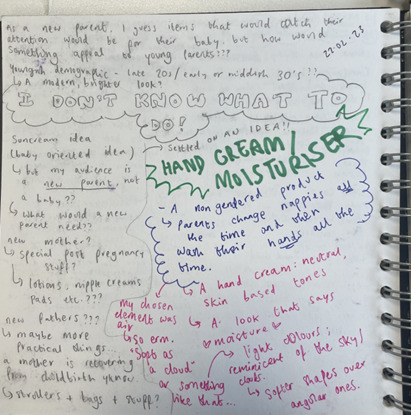 As a new parent, I guess items that would catch their
attention would be for their baby. but how would
something appeal to young parents???
22.02.23
Youngish demographic - late 20s / early or middish 30's!!
↳ A modern, brighter look?
I DON'T KNOW WHAT TO
DO!
→ Settled ON AN IDEA!!
HAND CREAM/
MOISTURISER
Suncream idea
(baby oriented idea)
↳ but my audience is
a new parent. not
a baby??
↳ what would a new
parent need??
new mother?
↳ special post pregnancy
stuff?
↳ lotions. nipple creams
pads etc.???
new fathers???
↳ maybe more
practical things..
a mother is recovering
from childbirth yknow.
↳ strollers + bags + stuff?
- A non gendered product
↳ parents change nappies all
the time and then
wash their hands all the
time.
→ A hand cream: neutral,
skin based tones
→ A look that says
♡ moisture ♡
↳ light colours:
reminicent of the sky/
clouds.
↳ Softer shapes over
angular ones.
my chosen
element was
air
↳ so erm.
"Soft as
a cloud"
or something
like that...